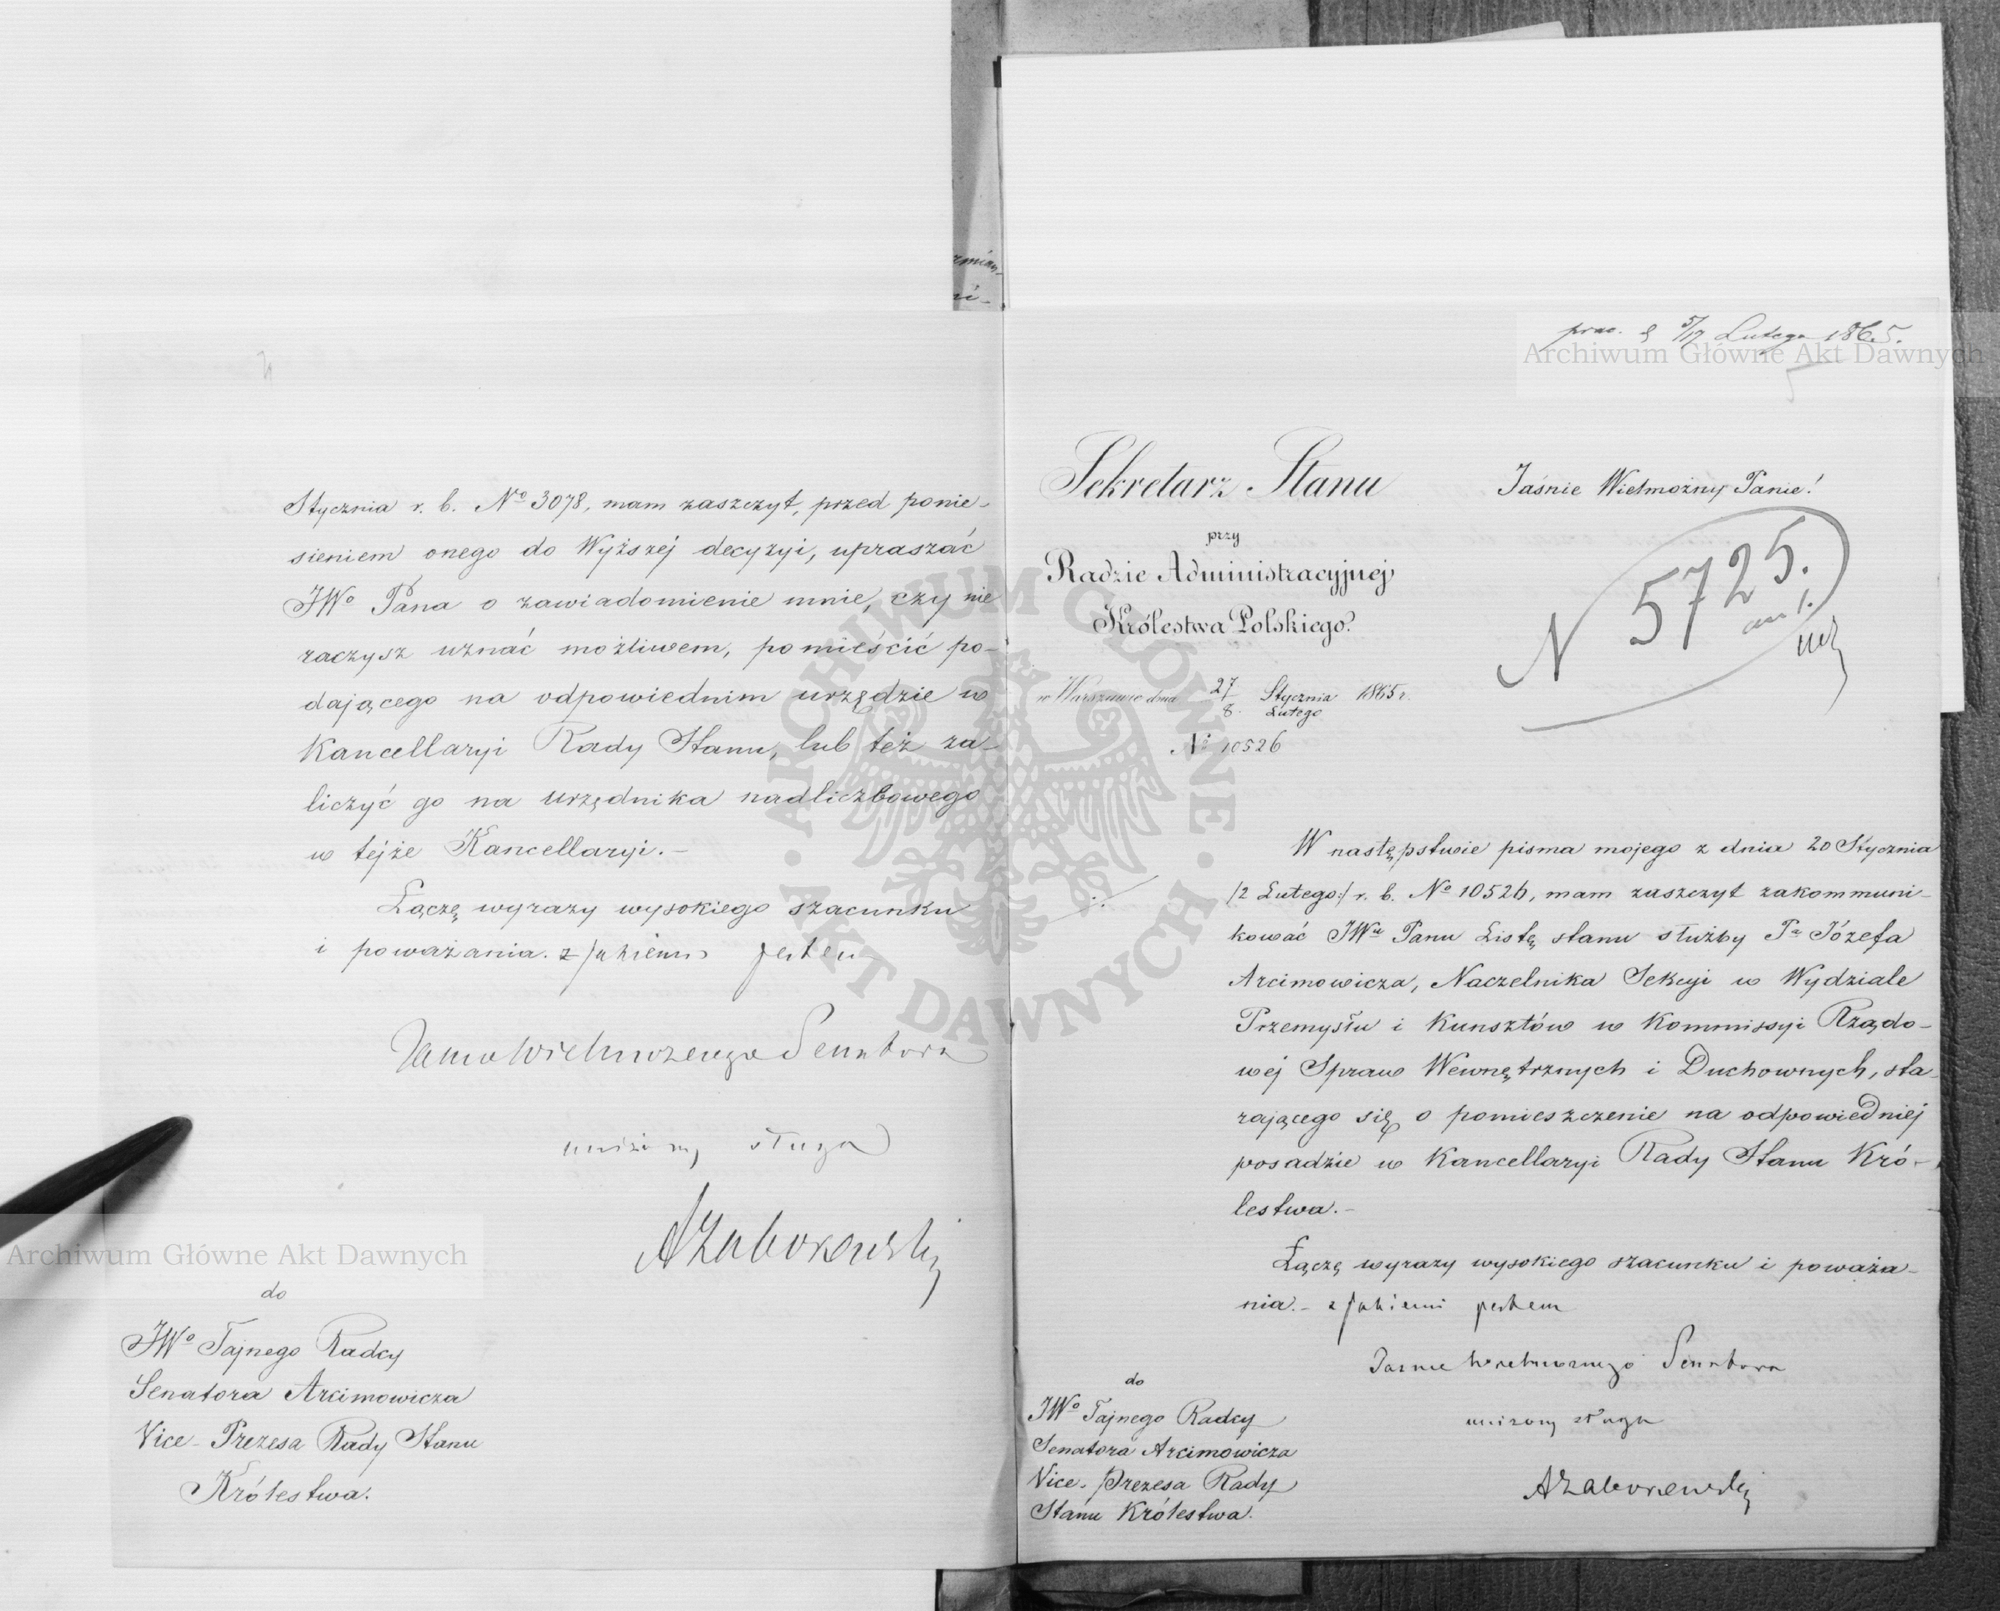 Stycznia r. b. Nº 3078, mam zaszczyt, przed ponie-
sieniem onego do Wyższej decyzyi, upraszać
JWº Pana o zawiadomienie mnie, czy nie
raczysz uznać możliwem, pomieścić po-
dającego na odpowiednim urzędzie w
Kancellaryi Rady Stanu, lub też za-
liczyć go na urzędnika nadliczbowego
w tejże Kancellaryi.-
Łączę wyrazy wysokiego szacunku
i poważania. z jakiemi jestem
Jaśnie Wielmożnego Senatora
uniżony sługa
AZaborowski
do
JWº Tajnego Radcy
Senatora Arcimowicza
Vice-Prezesa Rady Stanu
Królestwa.
5/17 Lutego 1865.
Sekretarz Stanu
przy
Radzie Administracyjnej
Królestwa Polskiego.
w Warszawie dnia 27/8 Stycznia/Lutego 1865 r.
Nº 10526
Jaśnie Wielmożny Panie!
N 5725.
W następstwie pisma mojego z dnia 20 Stycznia
/2 Lutego:/ r. b. Nº 10526, mam zaszczyt zakommuni-
kować JWu Panu Listę stanu służby Pa Józefa
Arcimowicza, Naczelnika Sekcyi w Wydziale
Przemysłu i Kunsztów w Kommissyi Rządo-
wej Spraw Wewnętrznych i Duchownych, sta-
rającego się o pomieszczenie na odpowiedniej
posadzie w Kancellaryi Rady Stanu Kró-
lestwa.-
Łączę wyrazy wysokiego szacunku i poważa-
nia.- z jakiemi jestem
Jaśnie Wielmożnego Senatora
uniżony sługa
AZaborowski
do
JWº Tajnego Radcy
Senatora Arcimowicza
Vice-Prezesa Rady
Stanu Królestwa.
Archiwum Główne Akt Dawnych
Archiwum Główne Akt Dawnych
ARCHIWUM GŁÓWNE · AKT DAWNYCH ·